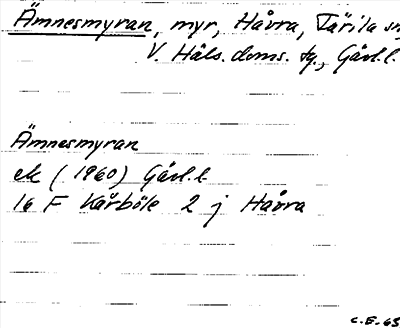 Ämnesmyran, myr, Håvra, Färila sn,
V. Häls. doms. tg., Gävl. l.
Ämnesmyran
ek (1960) Gävl. l.
16 F Kårböle 2 j Håvra
C.E. 63